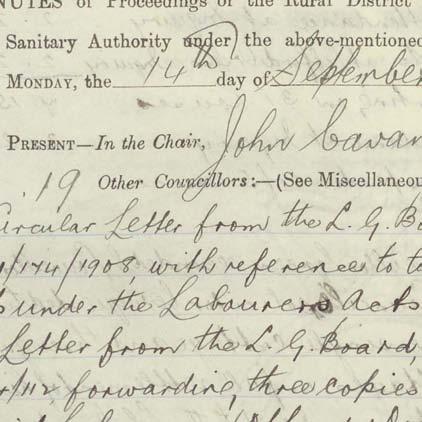 NUTES of Proceedings of the Rural District
Sanitary Authority under the above-mentioned
MONDAY, the 14th day of September
PRESENT—In the Chair, John Cavan
19 Other Councillors:—(See Miscellaneou
Circular Letter from the L. G. Bo
/174/1908, with reference to
under the Labourers Acts
Letter from the L. G. Board,
/112, forwarding three copies